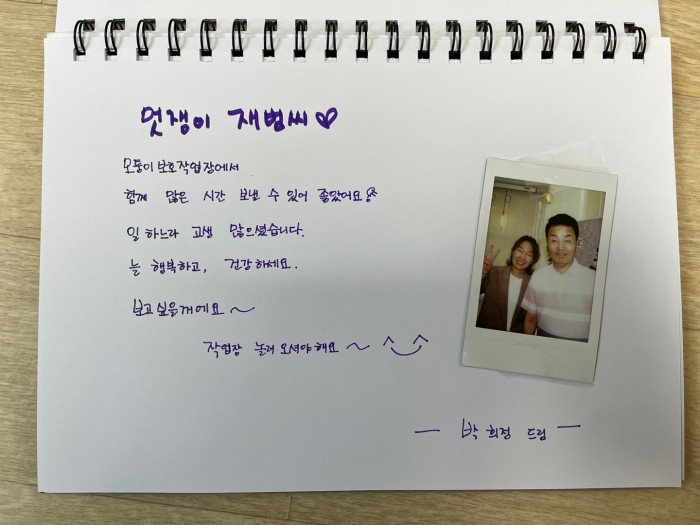 멋쟁이 재범씨♡
모퉁이 보호작업장에서
함께 많은 시간 보낼 수 있어 좋았어요
일 하느라 고생 많으셨습니다.
늘 행복하고, 건강하세요.
보고싶을거에요~
작업장 놀러 오셔야해요~ ^‿^
— 박희정 드림 —